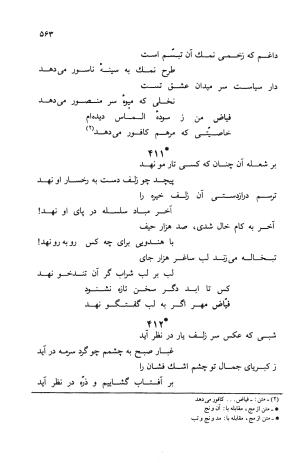 ۵۶۳
داغم که زخمی نمك آن تبسّم است
طرح نمك به سینهٔ ناسور می‌دهد
دار سیاست سر میدان عشق تست
نخلی که میوهٔ سر منصور می‌دهد
فیاض من ز سودهٔ الماس دیده‌ام
خاصیّتی که مرهم کافور می‌دهد(۲)
*۴۱۱
بر شعله آن چنان که کسی تار مو نهد
پیچد چو زلف دست به رخسار او نهد
ترسم درازدستی آن زلف خیره را
آخر مباد سلسله در پای او نهد!
آخر به کام خال شدی، صد هزار حیف
با هندویی برای چه کس رو به رو نهد!
تبخاله می‌زند لب ساغر هزار جای
لب بر لب شراب گر آن تندخو نهد
کس تا ابد دگر سخن تازه نشنود
فیّاض مهر اگر به لب گفتگو نهد
*۴۱۲
شبی که عکس سر زلف یار در نظر آید
غبار صبح به چشمم چو گرد سرمه در آید
ز کبریای جمال تو چشم اشك فشان را
بر آفتاب گشاییم و ذرّه در نظر آید
(۲) - متن : - فیاض... کافور می‌دهد
* - متن از مج، مقابله با: آن و نج
* - متن از مج، مقابله با: مد و نج و تب